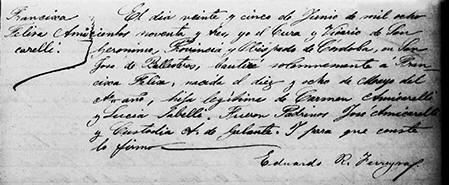 Francisca El dia veinte y cinco de Junio de mil ocho
Felisa Ami cientos noventa y tres, yo el Cura y Vicario de San
carelli: Geronimo, Provincia y Obispado de Cordoba, en San
José de Ballesteros, bautizé solemnemente a Fran
cisca Felisa, nacida el diez y ocho de Mayo del
cte año, hija legítima de Carmen Amicarelli
y Lucia Sabelli. Fueron Padrinos José Amicarelli
y Custodia A. de Galante. Y para que conste
lo firmo
Eduardo R. Ferreyra